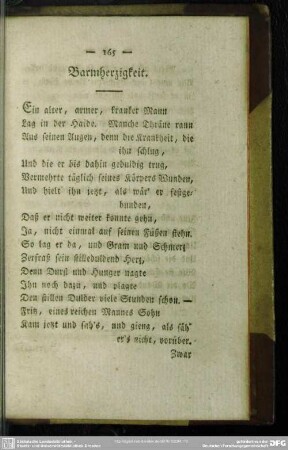 — 165 —
Barmherzigkeit.
Ein alter, armer, kranker Mann
Lag in der Haide. Manche Thräne rann
Aus seinen Augen, denn die Krankheit, die
ihn schlug,
Und die er bis dahin geduldig trug,
Vermehrte täglich seines Körpers Wunden,
Und hielt ihn jetzt, als wär' er festge-
bunden,
Daß er nicht weiter konnte gehn,
Ja, nicht einmal auf seinen Füßen stehn.
So lag er da, und Gram und Schmerz
Zerfraß sein stilleduldend Herz,
Denn Durst und Hunger nagte
Ihn noch dazu, und plagte
Den stillen Dulder viele Stunden schon. —
Fritz, eines reichen Mannes Sohn
Kam jetzt und sah's, und gieng, als säh'
er's nicht, vorüber.
Zwar